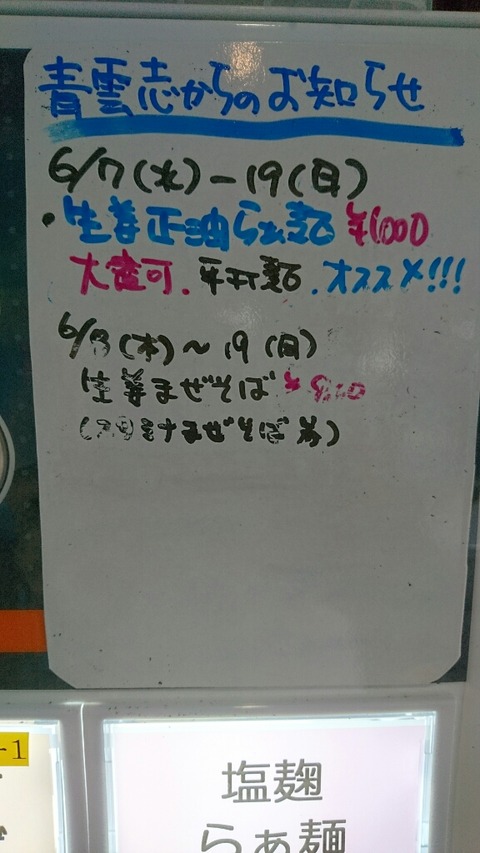 青雲志からのお知らせ
6/7(水)-19(日)
・生姜正油らぁ麺 ¥1000
大盛可.平打麺.オススメ!!!
6/8(木)~19(日)
生姜まぜそば
まぜそば券)
-1
塩麹
らぁ麺